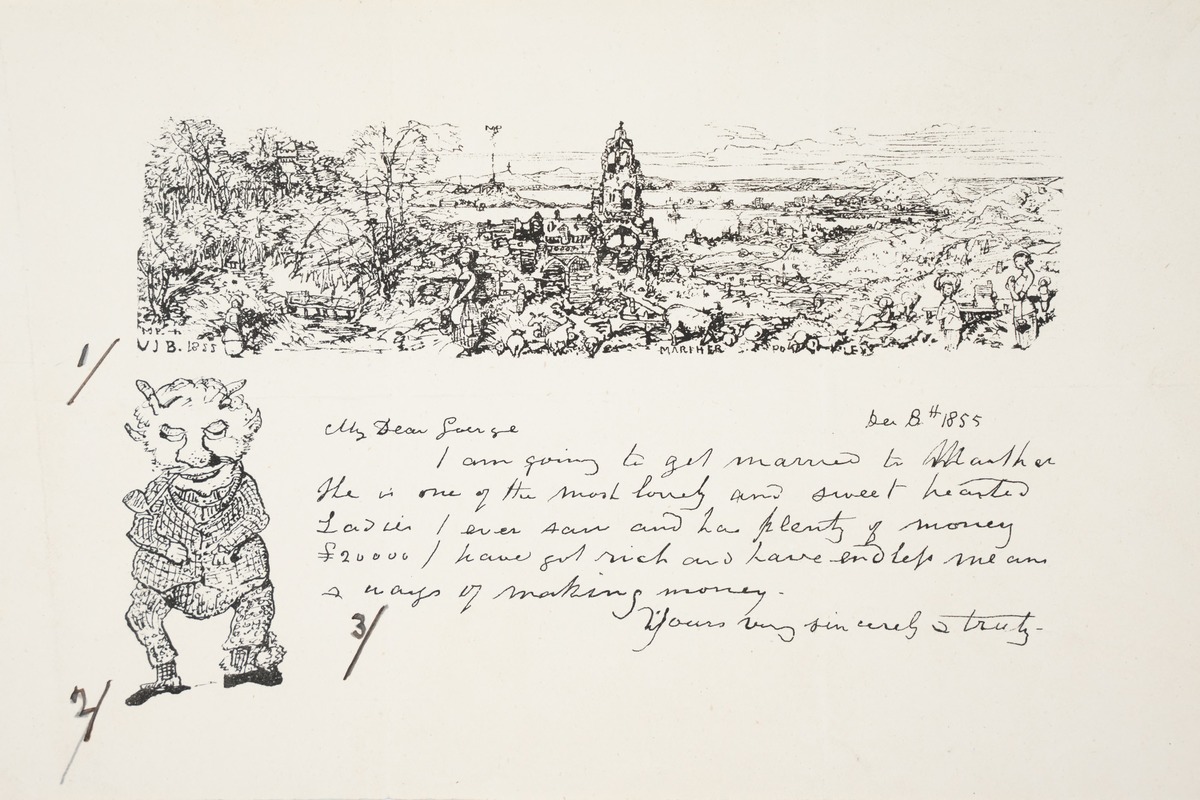 VJB. 1855
MARTHER
1/
My Dear George
Dec 8th 1855
I am going to get married to Marther
She is one of the most lovely and sweet hearted
Ladies I ever saw and has plenty of money
£20000 I have got rich and have endless means
& ways of making money.
Yours very sincerely & truly-
3/
2/